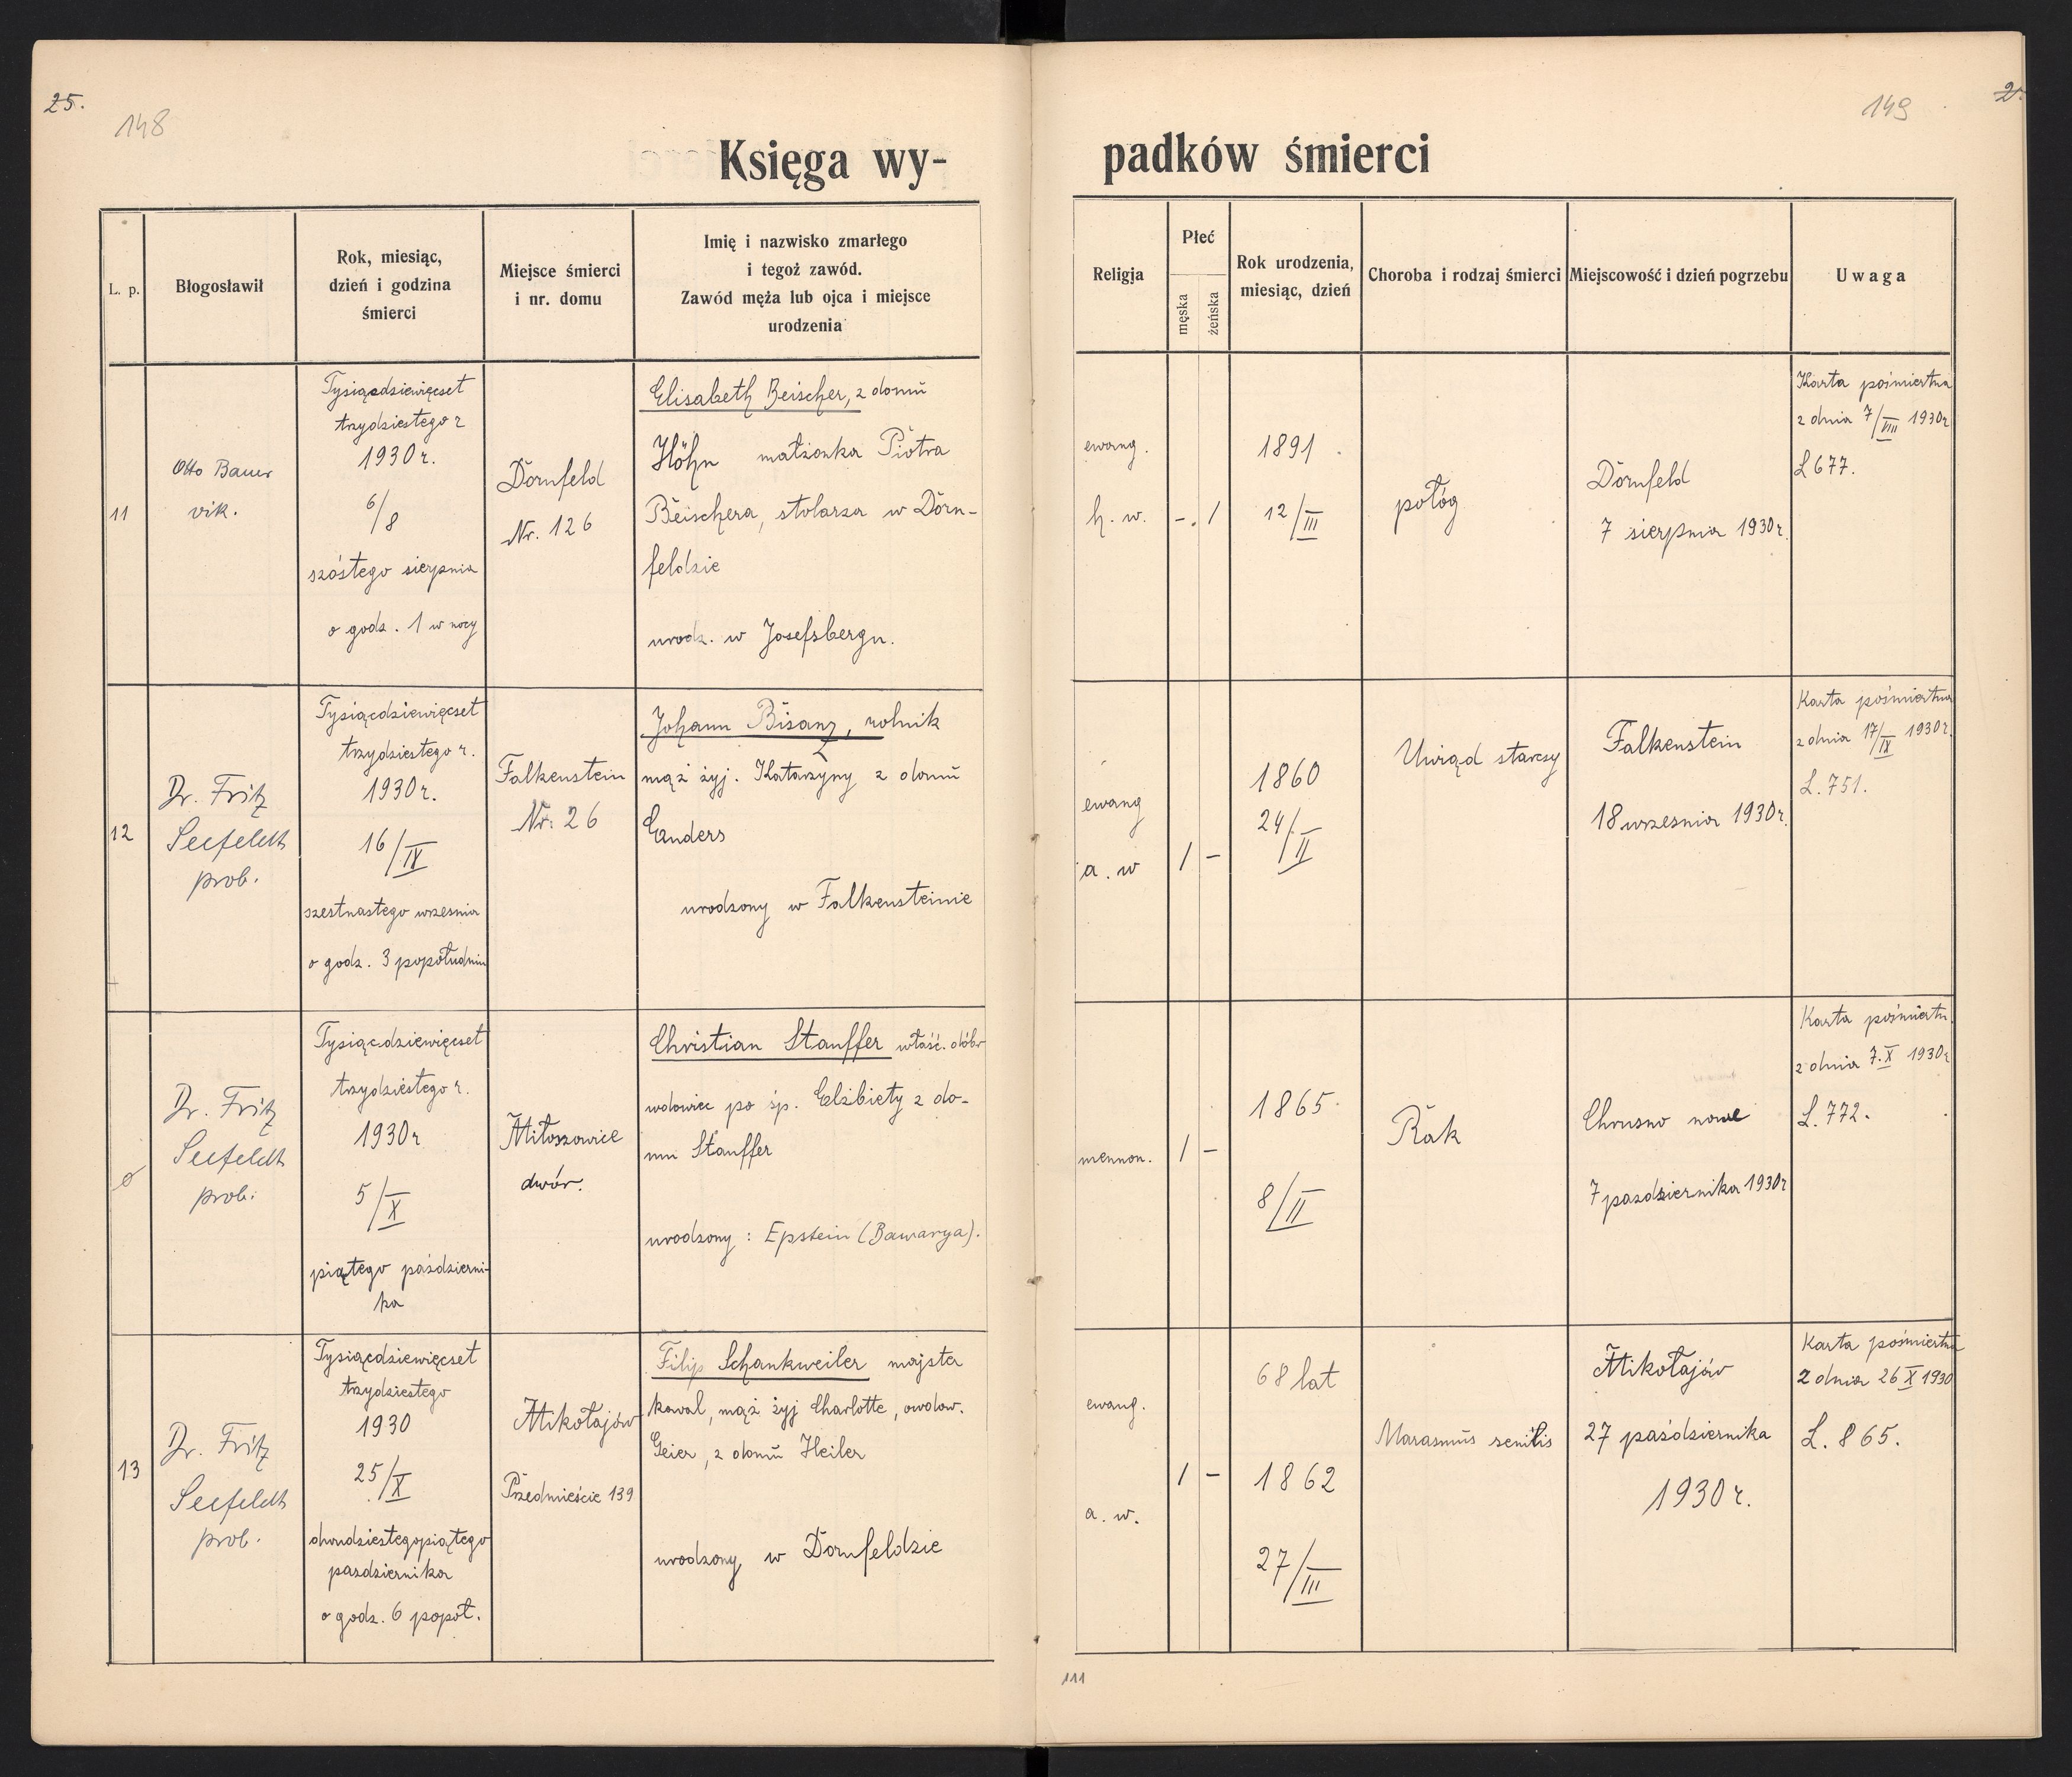 25.
148
149
Księga wy-
padków śmierci
L. p.
Błogosławił
Rok, miesiąc,
dzień i godzina
śmierci
Miejsce śmierci
i nr. domu
Imię i nazwisko zmarłego
i tegoż zawód.
Zawód męża lub ojca i miejsce
urodzenia
Religja
Płeć
męska
żeńska
Rok urodzenia,
miesiąc, dzień
Choroba i rodzaj śmierci
Miejscowość i dzień pogrzebu
Uwaga
11
Otto Bauer
vik.
Tysiącdziewięcset
trzydziestego r
1930 r.
6/8
szóstego sierpnia
o godz. 1 w nocy
Dornfeld
Nr. 126
Elisabeth Beischer, z domu
Höhn małżonka Piotra
Beischera, stolarza w Dorn-
feldzie
urodz. w Josefsbergu.
ewang.
h. w.
-. 1
1891
12/III
połóg
Dornfeld
7 sierpnia 1930 r.
Karta pośmiertna
z dnia 7/VIII 1930 r
L 677.
12
Dr. Fritz
Seefeldt
prob.
Tysiącdziewięcset
trzydziestego r.
1930 r.
16/IX
szestnastego wrzesnia
o godz. 3 popołudniu
Falkenstein
Nr. 26
Johann Bisanz, rolnik
mąż żyj. Katarzyny z domu
Enders
urodzony w Falkensteinie
ewang
a. w
1 -
1860
24/II
Uwiąd starczy
Falkenstein
18 wrzesnia 1930 r.
Karta pośmiertna
z dnia 17/IX 1930 r.
L. 751.
Dr. Fritz
Seefeldt
prob.
Tysiącdziewięcset
trzydziestego r.
1930 r
5/X
piątego październi-
ka
Miłoszowice
dwór.
Christian Stauffer właść. dóbr
wdowiec po śp. Elżbiety z do-
mu Stauffer
urodzony : Epstein (Bawarya).
mennon.
1 -
1865
8/II
Rak
Chrusno nowe
7 pazdziernika 1930 r
Karta pośmiertn.
z dnia 7.X 1930 r
L. 772.
13
Dr. Fritz
Seefeldt
prob.
Tysiącdziewięcset
trzydziestego
1930
25/X
dwudziestegopiątego
pazdziernika
o godz. 6 popoł.
Mikołajów
Przedmieście 139
Filip Schankweiler majster
kowal, mąż żyj Charlotte, owdow.
Geier, z domu Heiler
urodzony w Dornfeldzie
ewang.
a. w.
1 -
68 lat
1862
27/III
Marasmus senilis
Mikołajów
27 października
1930 r.
Karta pośmiertna
z dnia 26 X 1930
L. 865.
111